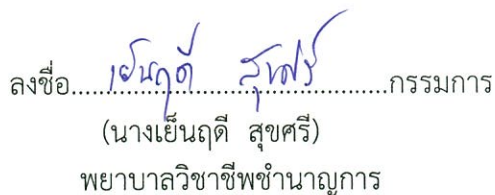 ลงชื่อ....เย็นฤดี สุขศรี....กรรมการ
(นางเย็นฤดี สุขศรี)
พยาบาลวิชาชีพชำนาญการ